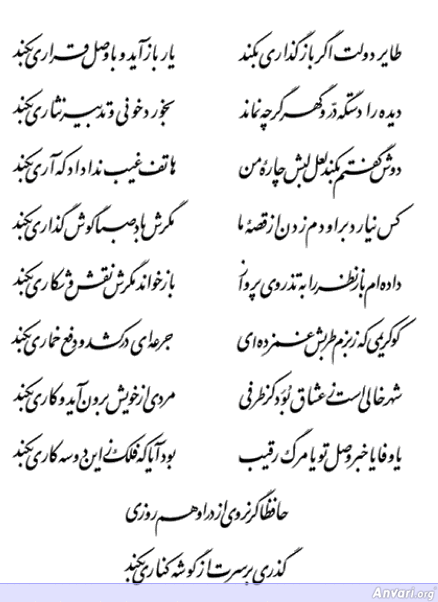 طایر دولت اگر باز گذاری بکند یار باز آید و با وصل قراری بکند
دیده را دستگه در و گهر گرچه نماند بخورد خونی و تدبیر نثاری بکند
دوش گفتم بکند لعل لبش چاره من هاتف غیب ندا داد که آری بکند
کس نیارد بر او دم زند از قصه ما مگرش باد صبا گوش گذاری بکند
داده‌ام باز نظر را به تذروی پرواز باز خواند مگرش نقش و شکاری بکند
کو کریمی که ز بزم طربش غمزده‌ای جرعه‌ای درکشد و دفع خماری بکند
شهر خالیست ز عشاق بود کز طرفی مردی از خویش برون آید و کاری بکند
یا وفا یا خبر وصل تو یا مرگ رقیب بود آیا که فلک زین دو سه کاری بکند
حافظا گر نروی از در او هم روزی
گذری بر سرت از گوشه کناری بکند
Anvari.org